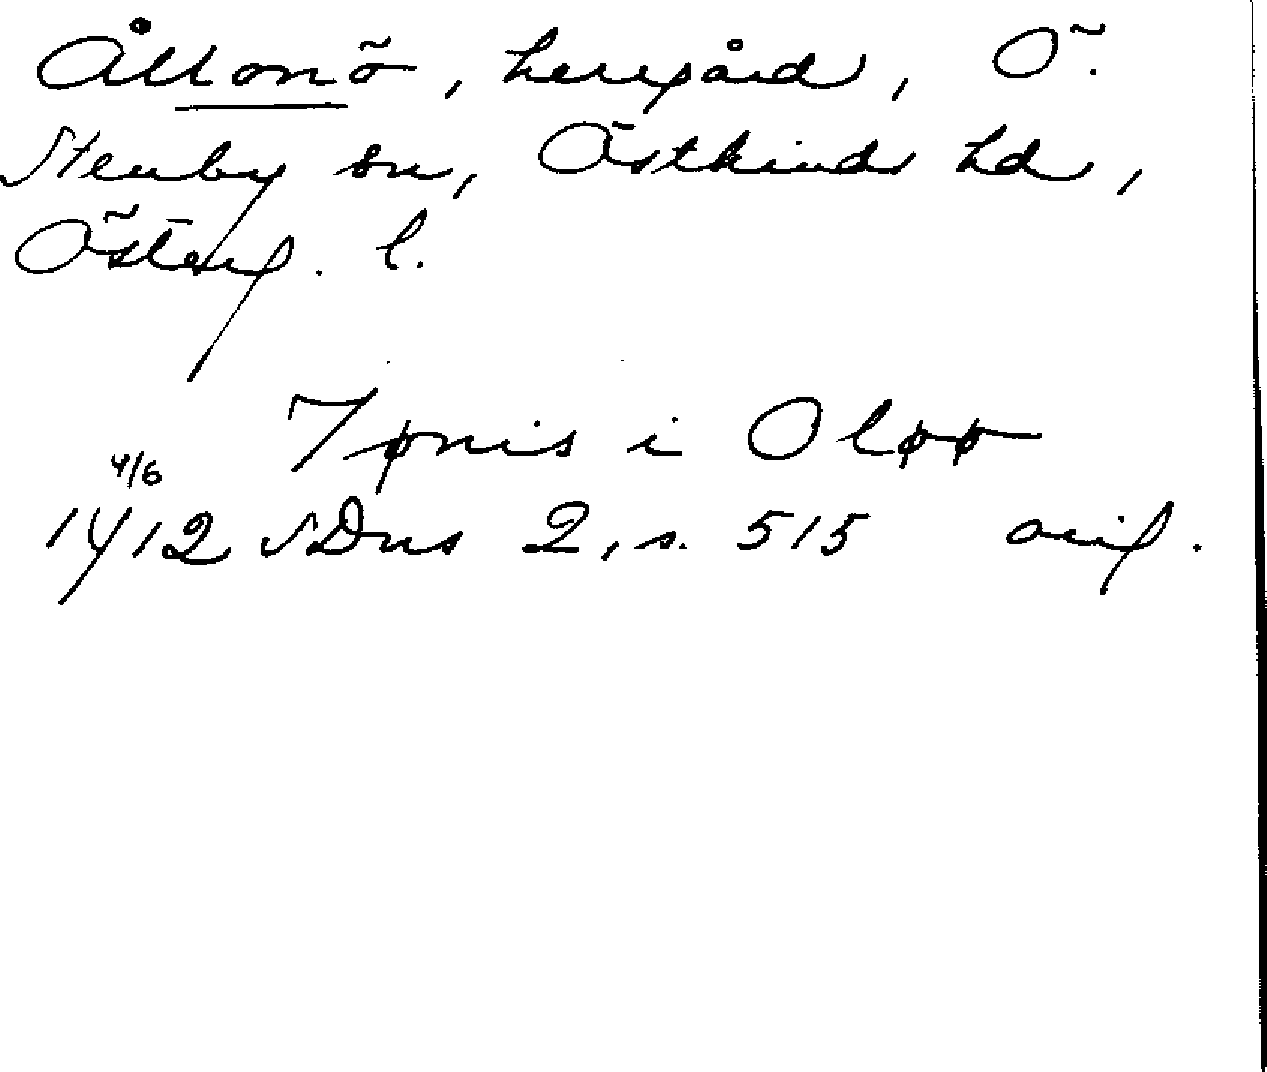 Ållonö, herrgård, Ö.
Stenby sn, Östkinds hd,
Österg. l.
Tønis i Oløø
4/6
1412 SDns 2, s. 515 orig.